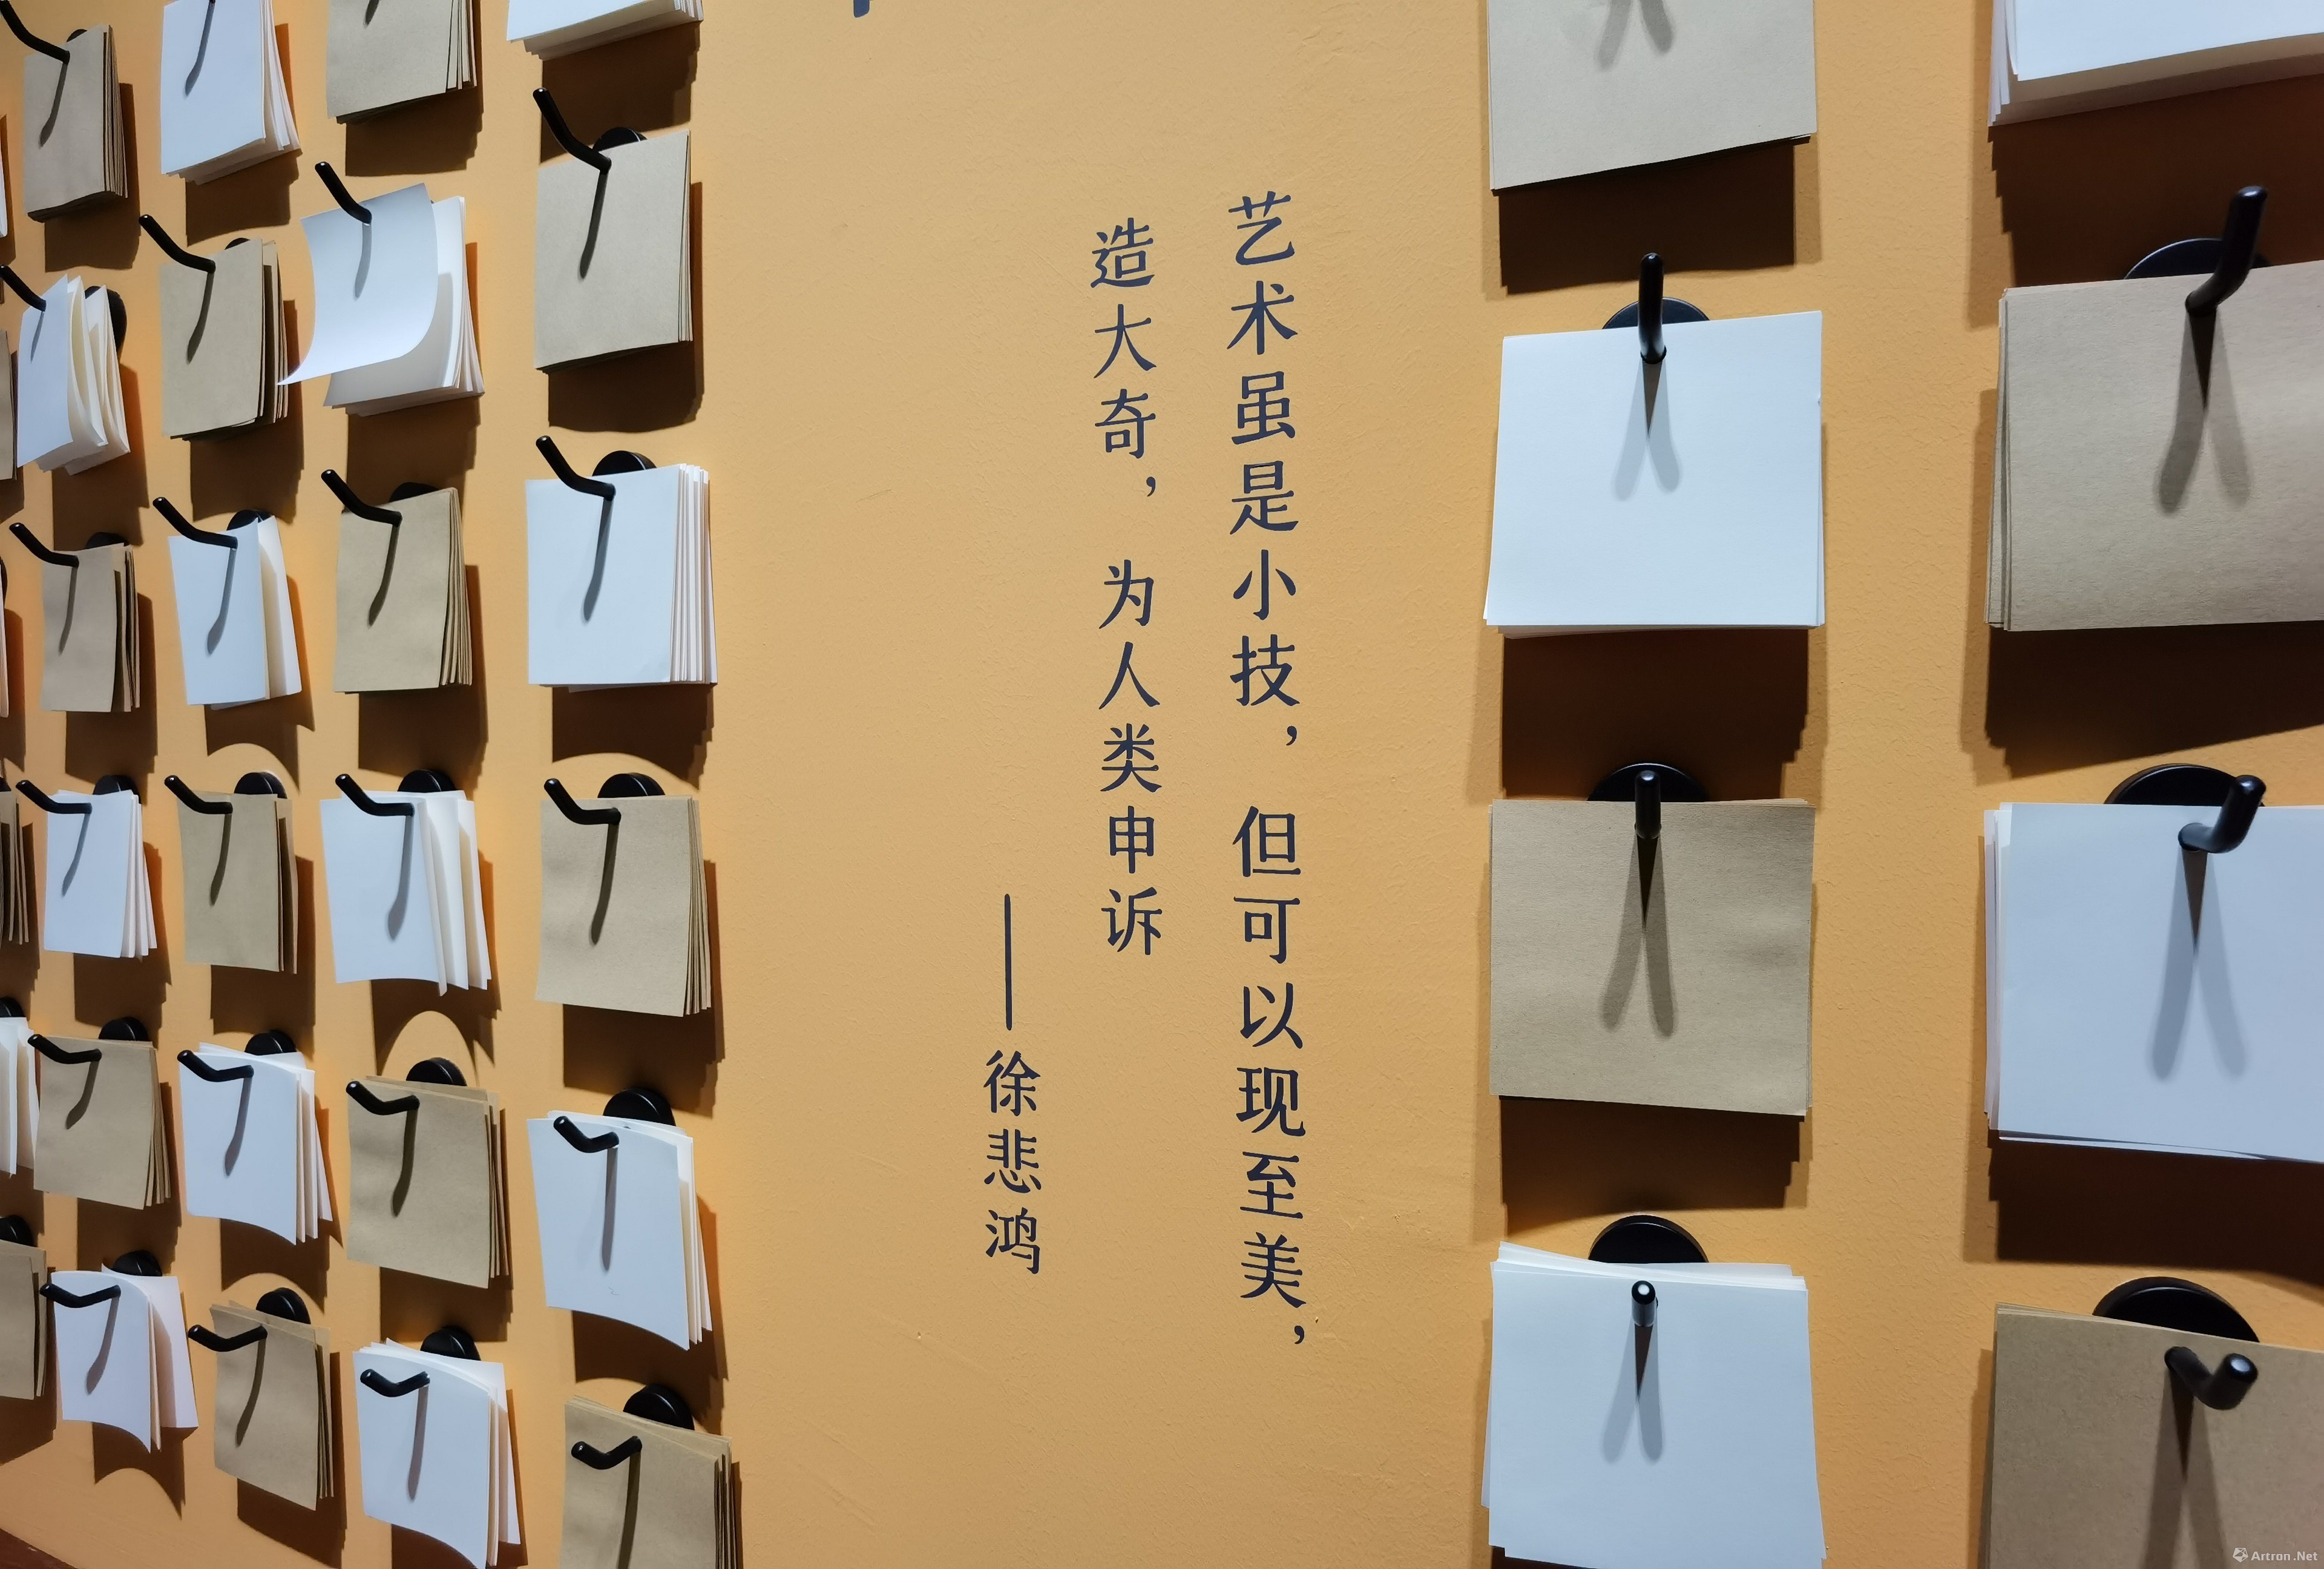 艺术虽是小技，但可以现至美，
造大奇，为人类申诉
——徐悲鸿
Artron.Net